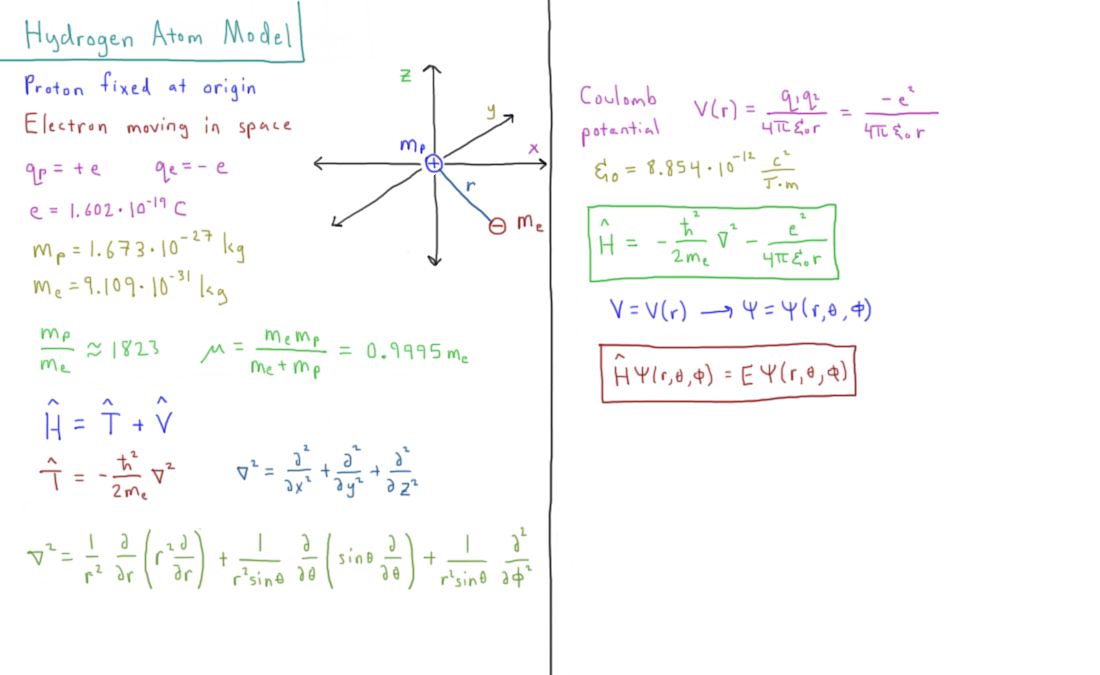 Hydrogen Atom Model
Proton fixed at origin
Electron moving in space
qₚ = + e qₑ = - e
e = 1.602·10⁻¹⁹ C
mₚ = 1.673·10⁻²⁷ kg
mₑ = 9.109·10⁻³¹ kg
z
y
x
mₚ
+
r
⊖ mₑ
mₚ/mₑ ≈ 1823 μ = mₑmₚ/(mₑ + mₚ) = 0.9995 mₑ
Ĥ = T̂ + V̂
T̂ = - ħ²/2mₑ ∇² ∇² = ∂²/∂x² + ∂²/∂y² + ∂²/∂z²
∇² = 1/r² ∂/∂r (r² ∂/∂r) + 1/(r² sinθ) ∂/∂θ (sinθ ∂/∂θ) + 1/(r² sinθ) ∂²/∂ϕ²
Coulomb potential V(r) = q₁q₂/(4πε₀r) = -e²/(4πε₀r)
ε₀ = 8.854·10⁻¹² C²/(J·m)
Ĥ = - ħ²/2mₑ ∇² - e²/(4πε₀r)
V = V(r) → Ψ = Ψ(r,θ,ϕ)
ĤΨ(r,θ,ϕ) = EΨ(r,θ,ϕ)